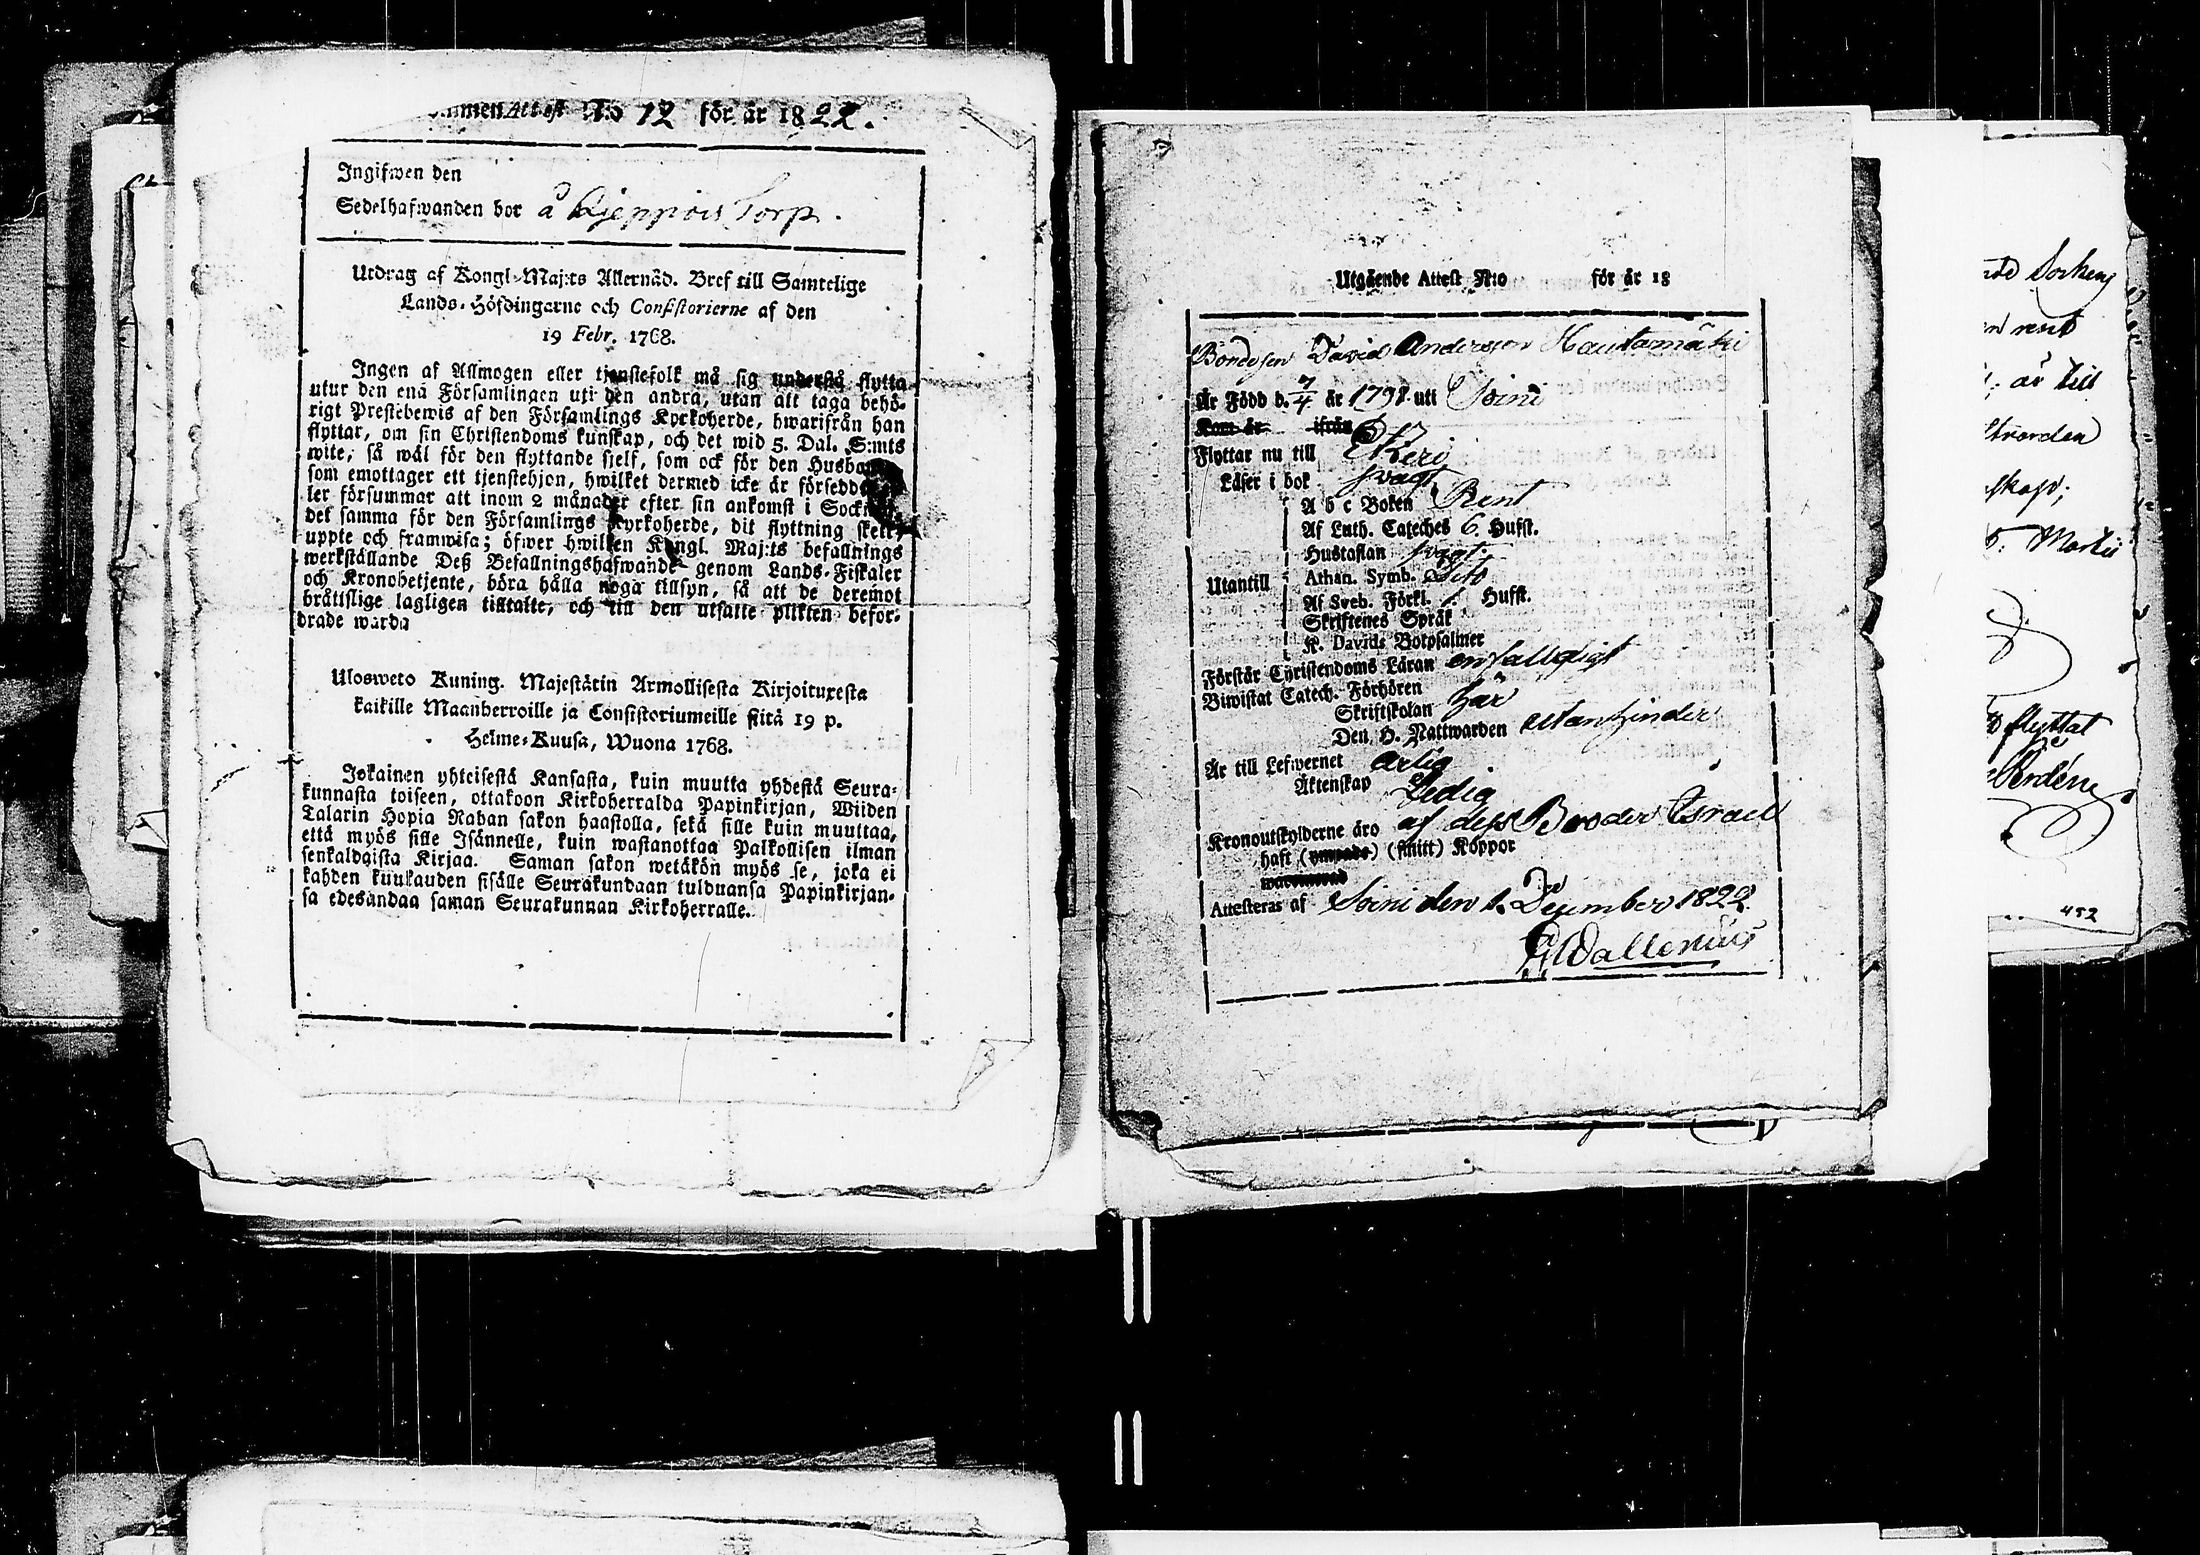 Attest N:o 12 för år 1822.
Ingifwen den
Sedelhafwanden bor å Torp.
Utdrag af Kongl. Maj:ts Allernåd. Bref till Samtelige
Lands-Höfdingarne och Consistorierne af den
19 Febr. 1768.
Ingen af Allmogen eller tjenstefolk må sig understå flytta
utur den ena Församlingen uti den andra, utan att taga behö-
rigt Prestebewis af den Församlings Kyrkoherde, hwarifrån han
flyttar, om sin Christendoms kunskap, och det wid 5. Dal. S:mts
wite, så wäl för den flyttande sjelf, som ock för den
som emottager ett tjenstehjon, hwilket dermed icke är
ler försummar att inom 2 månader efter sin ankomst i
det samma för den Församlings Kyrkoherde, dit flyttning
uppte och framwisa; öfwer hwilken Kongl. Maj:ts befallnings
werkställande Deß Befallningshafwande genom Lands-Fiskaler
och Kronobetjente, böra hålla noga tillsyn, så att de deremot
bråttslige lagligen tilltalte, och till den utsatte plikten befor-
drade warda
Ulosweto Kuning. Majestätin Armollisesta Kirjoituxesta
kaikille Maanherroille ja Consistoriumeille siitä 19 p.
Helme-Kuusa, Wuona 1768.
Jokainen yhteisestä Kansasta, kuin muutta yhdestä Seura-
kunnasta toiseen, ottakoon Kirkoherralda Papinkirjan, Wiiden
Talarin Hopia Rahan sakon haastolla, sekä sille kuin muuttaa,
että myös sille Isännelle, kuin wastanottaa Palkollisen ilman
senkaldaista Kirjaa. Saman sakon wetäkön myös se, joka ei
kahden kuukauden sisälle Seurakundaan tulduansa Papinkirjan-
sa edesandaa saman Seurakunnan Kirkoherralle.
Utgående Attest N:o för år 18
Bondeson David Andersson Hautamäki
Är Född d. 7/4 år 1798 uti Soini
Kom år ifrån
Flyttar nu till
Läser i bok svagt
A b c Boken Rent
Af Luth. Cateches 6. Hufst.
Hustaflan svagt
Utantill Athan. Symb. Dito
Af Sveb. Förkl. Hufst.
Skriftenes Språk
K. Davids Botpsalmer
Förstår Christendoms Läran enfalldigt
Biwistat Catech. Förhören
Skriftskolan här
Den H. Nattwarden utan hinder
Är till Lefwernet ärlig
Äktenskap Ledig
Kronoutskylderne äro af dess Broder Israel
haft (ympade) (smitt) Koppor
Attesteras af Soini den 1. December 1822
Wallenius
rent
är till
Martii
flyttat
452